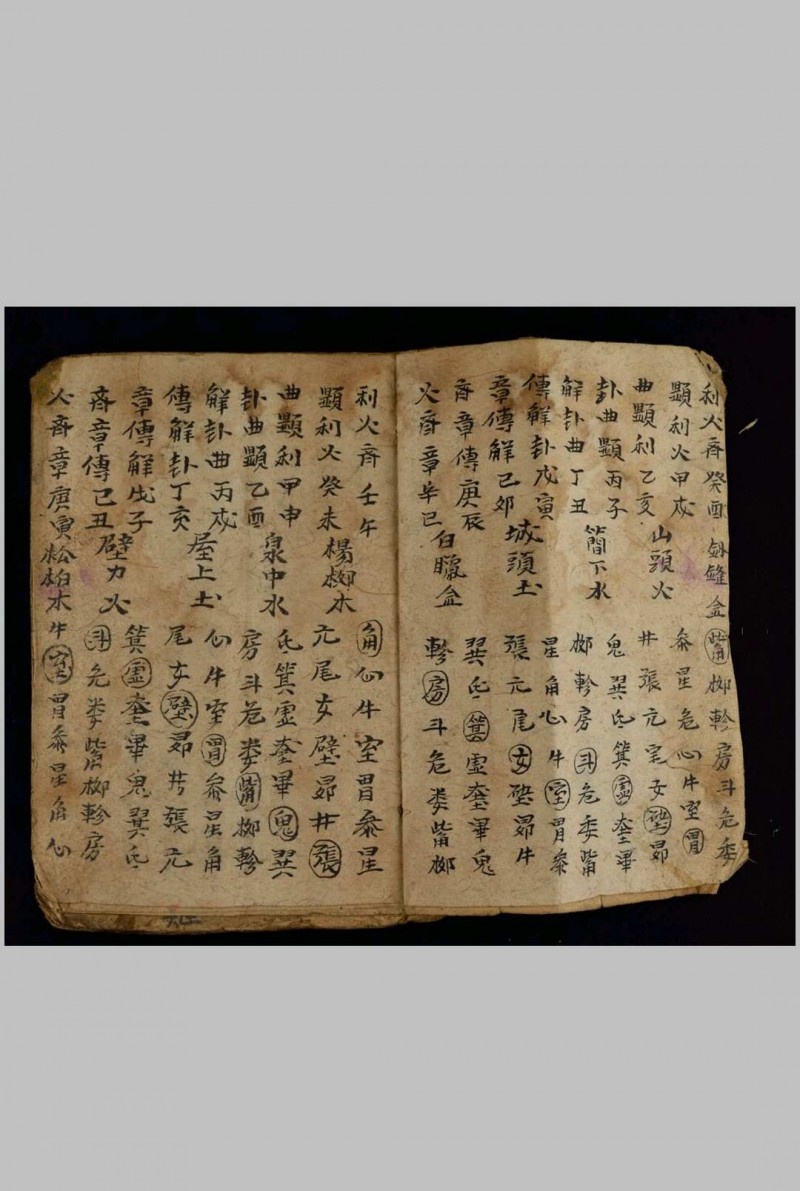 利火斉癸酉 釼鋒金 觜柳軫房斗危婁
顯利火甲戌 参星危心牛室胃
曲顯利乙亥 山頭火 井張亢室女壁昴
卦曲顯丙子 鬼翼氐箕虚奎畢
解卦曲丁丑 簡下水 柳軫房斗危委觜
傳解卦戊寅 星角心牛室胃参
章傳解己卯 城頭土 張亢尾女壁昴牛
斉章傳庚辰 翼氐箕虚奎畢鬼
火斉章辛巳 白臘金 軫房斗危婁觜柳
利火斉壬午 角心牛室胃参星
顯利火癸未 楊柳木 亢尾女壁昴井張
曲顯利甲申 氐箕虚奎畢鬼翼
卦曲顯乙酉 泉中水 房斗危婁觜柳軫
解卦曲丙戌 心牛室胃参星角
傳解卦丁亥 屋上土 尾女壁昴井張亢
章傳解戊子 箕虚奎畢鬼翼氐
斉章傳己丑 壁力火 斗危婁觜柳軫房
火斉章庚寅 松柏木 牛室胃参星角心